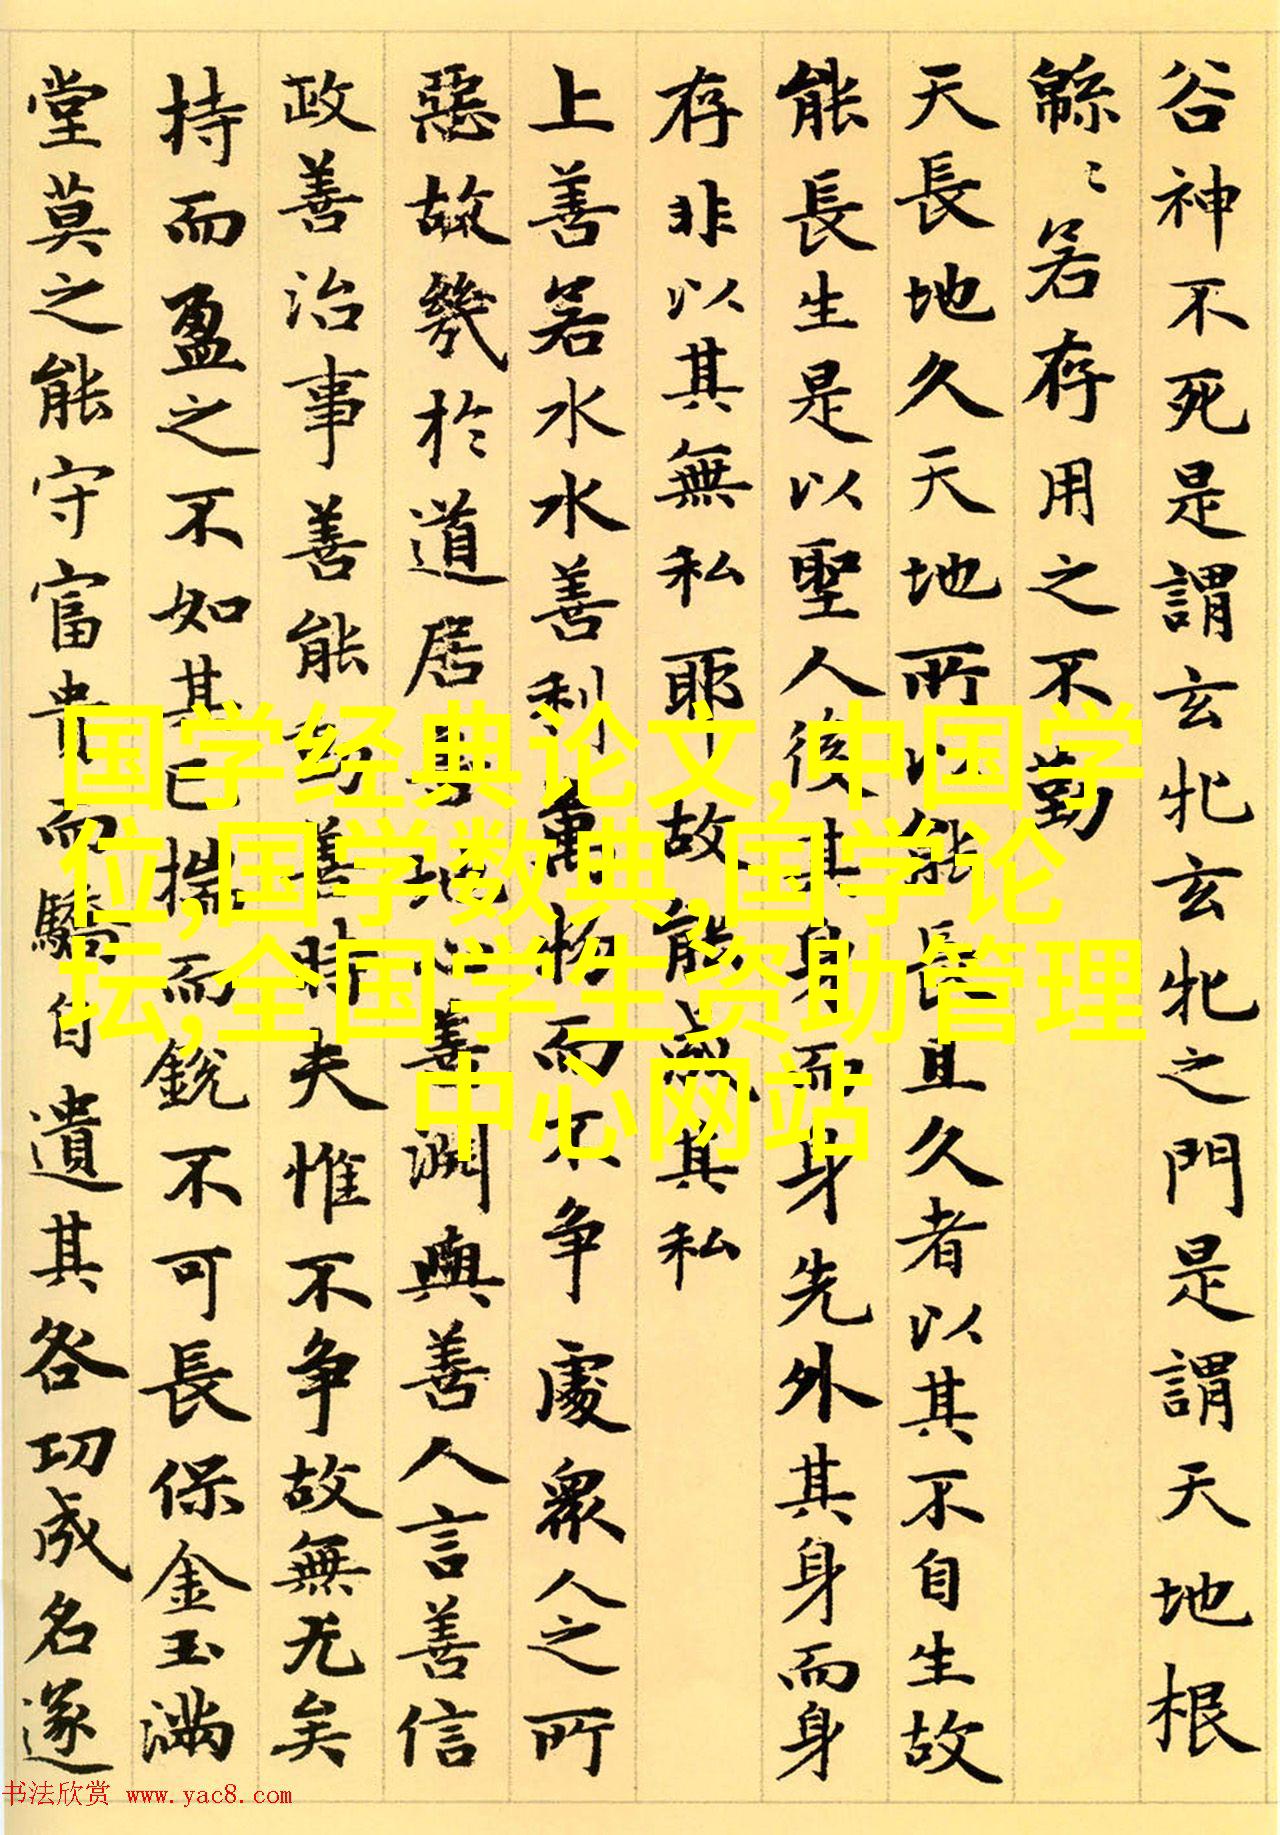 谷神不死是謂玄牝玄牝之門是謂天地根
緜〻若存用之不勤
天長地久天地所以能長且久者以其不自生故
能長生是以聖人後其身而身先外其身而身
存非以其無私耶故能成其私
上善若水水善利萬物而不争處衆人之所
惡故幾於道居善地心善淵與善人言善信
政善治事善能動善時夫惟不争故無尤矣
持而盈之不如其已揣而銳不可長保金玉滿
堂莫之能守富貴而驕自遺其咎功成名遂
国学经典论文,中国学
位,国学数典,国学论
坛,全国学生资助管理
中心网站
书法欣赏 www.yac8.com